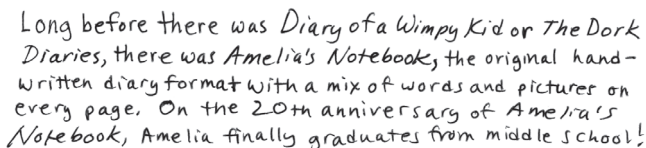 Long before there was Diary of a Wimpy Kid or The Dork
Diaries, there was Amelia's Notebook, the original hand-
written diary format with a mix of words and pictures on
every page. On the 20th anniversary of Amelia's
Notebook, Amelia finally graduates from middle school!